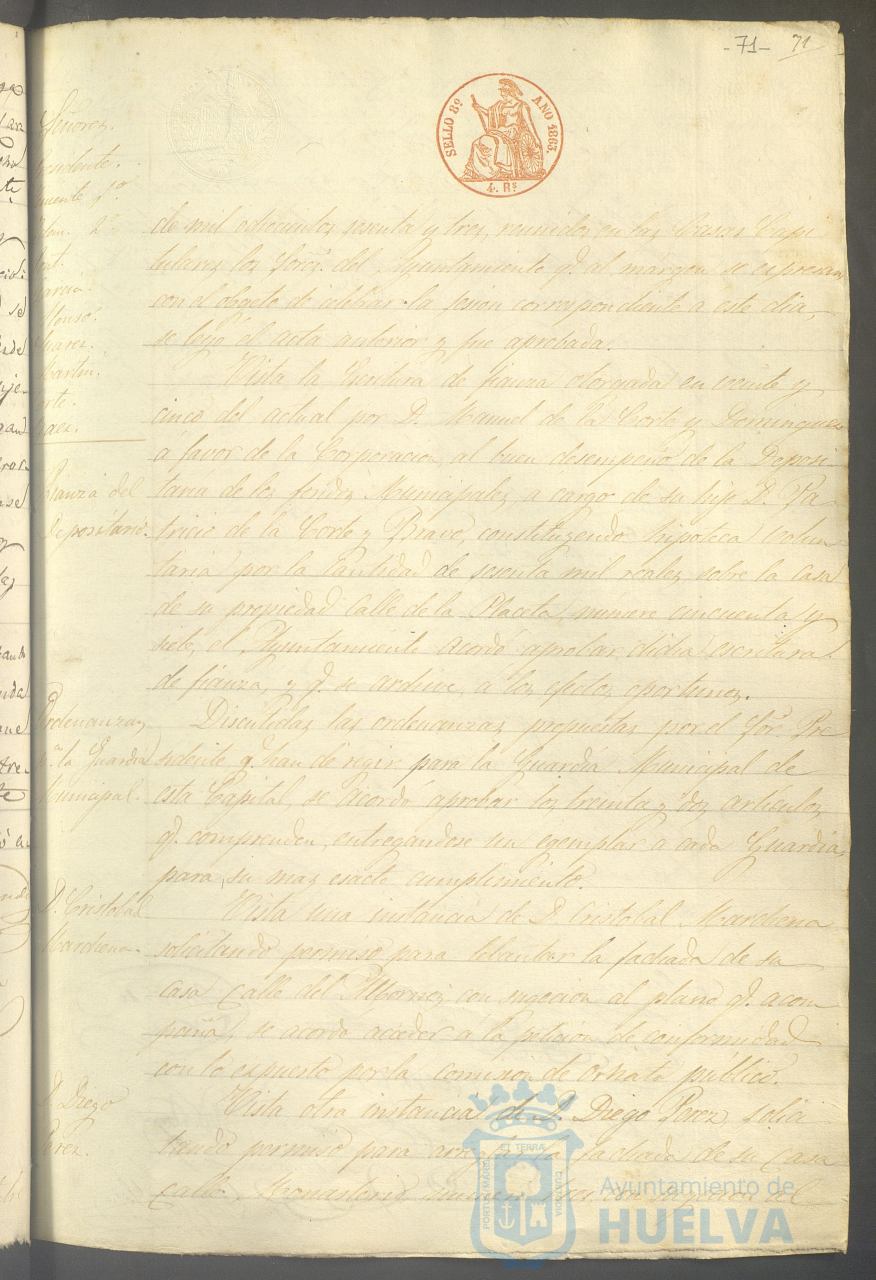 -71- 71
SELLO 8º AÑO 1863.
4. Rs
Señores.
2º
Garcia.
Alonso.
Suarez.
Martin.
de mil ochocientos sesenta y tres, reunidos en las Casas Capi
tulares los Sores. del Ayuntamiento q. al margen se expresan
con el objeto de celebrar la sesion correspondiente a este dia,
se leyó el acta anterior y fue aprobada.
Fianza del
Depositario.
Vista la Escritura de fianza otorgada en veinte y
cinco del actual por D. Manuel de la Corte y Dominguez
á favor de la Corporacion al buen desempeño de la Deposi-
taria de los fondos Municipales a cargo de su hijo D. Pa
tricio de la Corte y Bravo, constituyendo hipoteca volun
taria por la cantidad de sesenta mil reales sobre la casa
de su propiedad Calle de la Placeta, numero cincuenta y
siete, el Ayuntamiento acordó aprobar dicha escritura
de fianza, y q. se archive, a los efectos oportunos.
Ordenanzas
pª la Guardia
Municipal.
Discutidas las ordenanzas propuestas por el Sor. Pre
sidente q. han de regir para la Guardia Municipal de
esta Capital, se acordó aprobar los treinta y dos articulos
q. comprenden, entregandose un egemplar a cada Guardia
para su mas esacto cumplimiento.
D. Cristobal
Marchena.
Vista una instancia de D. Cristobal Marchena
solicitando permiso para lebantar la fachada de su
casa Calle del con sugecion al plano q. acom
paña, se acordó acceder á la peticion de conformidad
con lo espuesto por la comision de ornato público.
D. Diego
Perez
Vista otra instancia de D. Diego Perez, solici
tando permiso para la fachada de su casa
calle Monasterio numero tres con sugecion al
PORTUS MARIS ET TERRÆ CUSTODIA
Ayuntamiento de
HUELVA